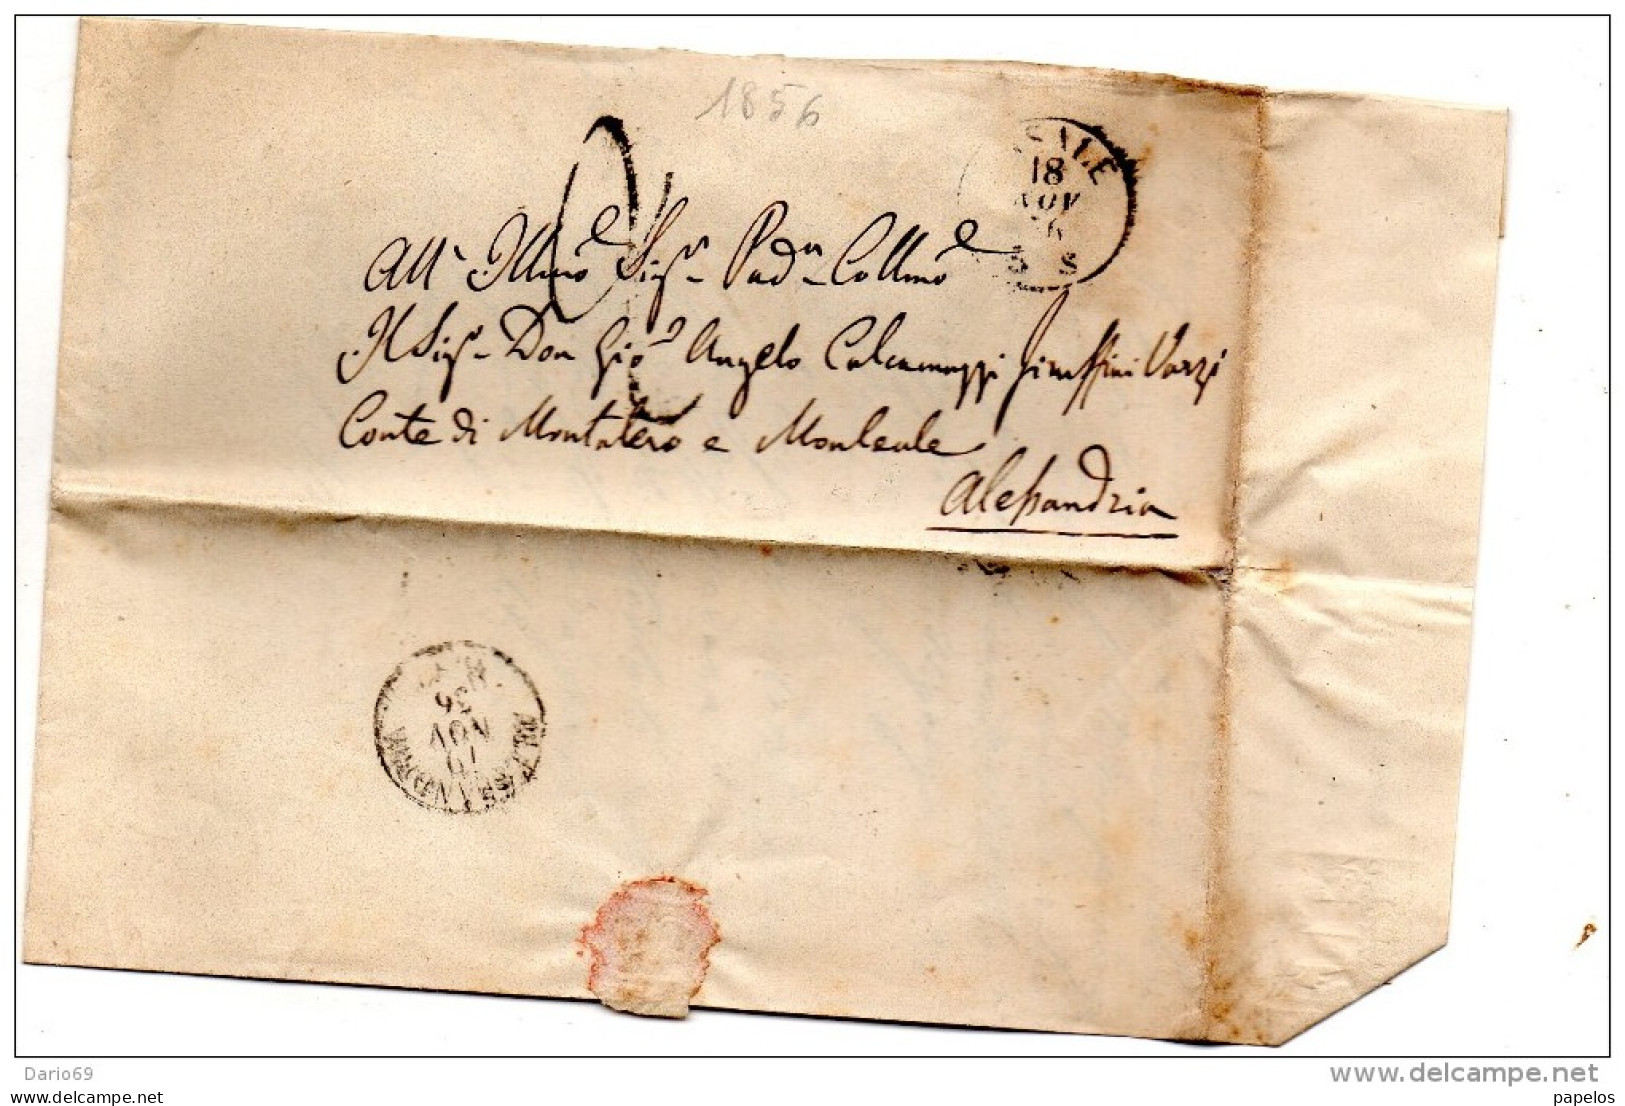 1856
SALE
18
NOV
6
5 S
All' Illmo Sigr Padn Collmo
Il Sigr Don Gio Angelo Calcamuggi Giraffini Varzi
Conte di Montatero e Monleale
Alessandria
ALESSANDRIA
19
NOV
56
Dario69
www.delcampe.net
papelos